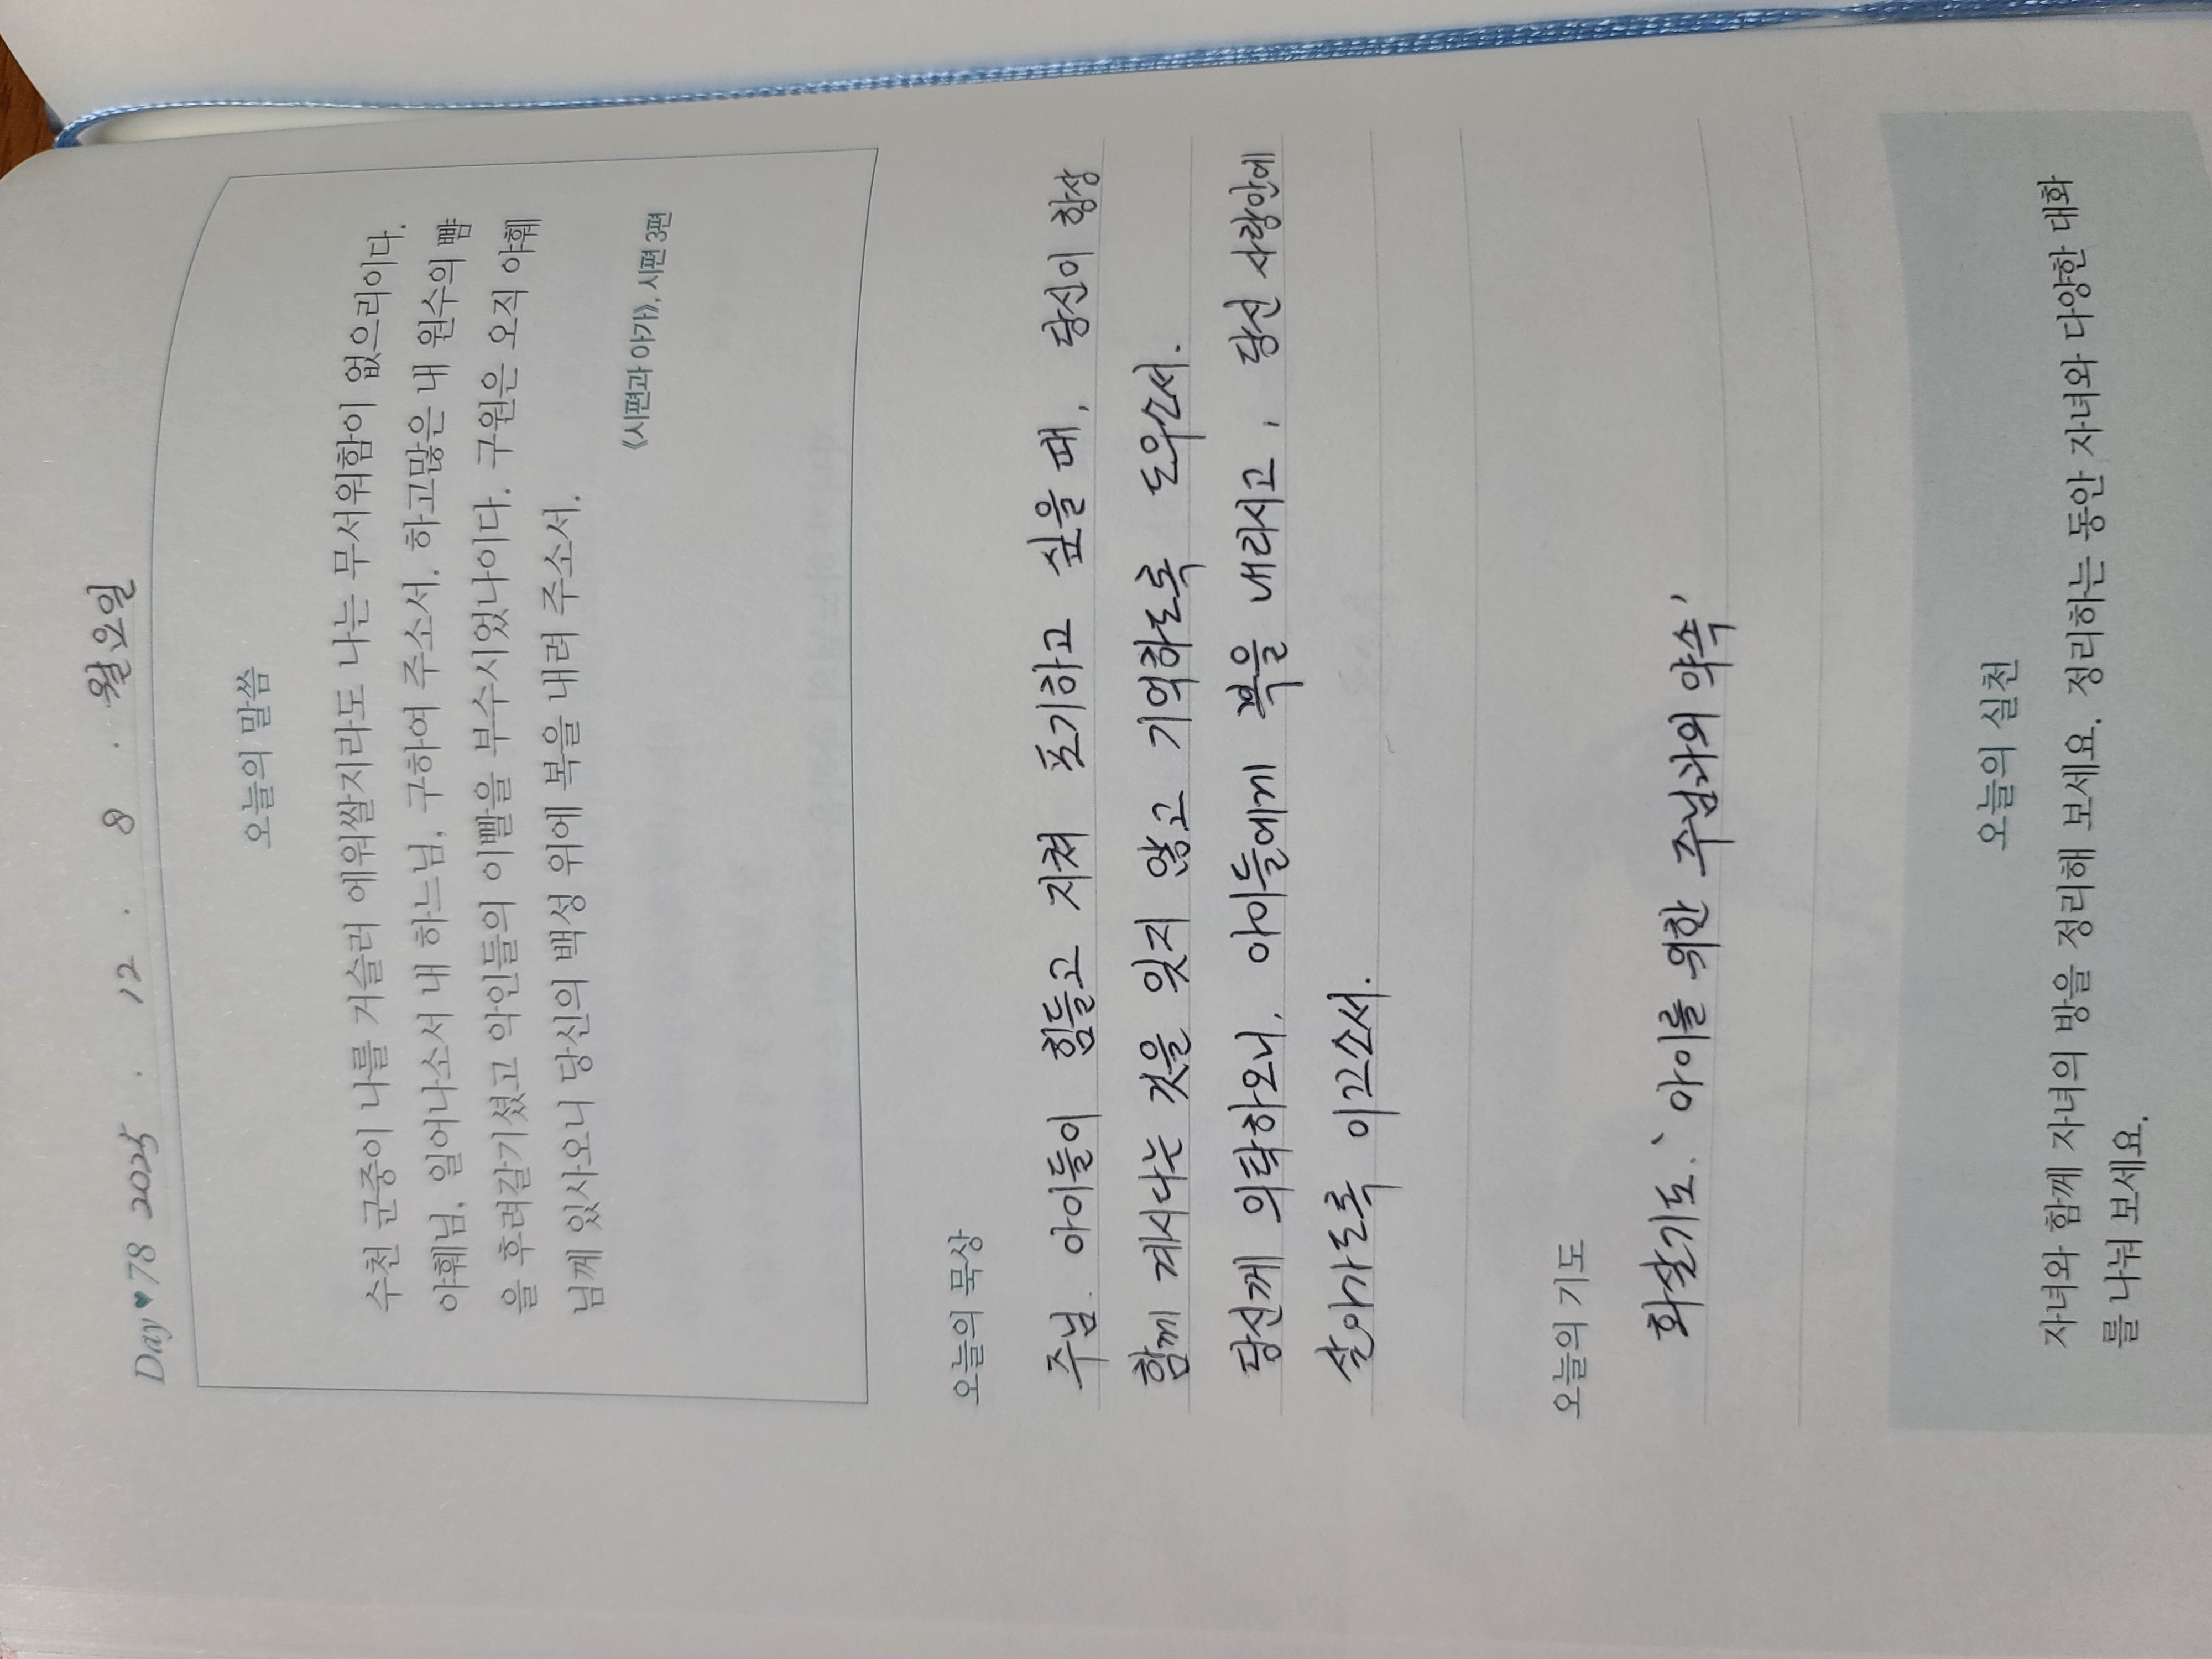 Day♥78 2025 . 12 . 8 . 월요일
오늘의 말씀
수천 군중이 나를 거슬러 에워쌀지라도 나는 무서워함이 없으리이다.
야훼님, 일어나소서 내 하느님, 구하여 주소서. 하고많은 내 원수의 뺨
을 후려갈기셨고 악인들의 이빨을 부수시었나이다. 구원은 오직 야훼
님께 있사오니 당신의 백성 위에 복을 내려 주소서.
《시편과 아가》, 시편 3편
오늘의 묵상
주님. 아이들이 힘들고 지쳐 포기하고 싶을 때, 당신이 항상
함께 계시다는 것을 잊지 않고 기억하도록 도우소서.
당신께 의탁하오니, 아이들에게 복을 내리시고, 당신 사랑안에
살아가도록 이끄소서.
오늘의 기도
화살기도. '아이를 위한 주님과의 약속'
오늘의 실천
자녀와 함께 자녀의 방을 정리해 보세요. 정리하는 동안 자녀와 다양한 대화
를 나눠 보세요.